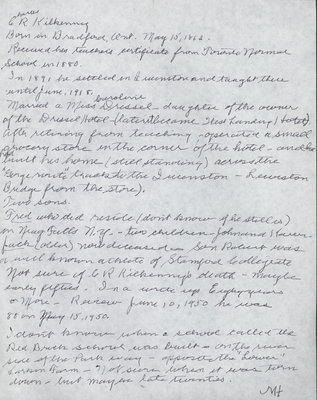 Charles
C R Kilkenny
Born in Bradford, Ont. May 15, 1862.
Received his teachers certificate from Toronto Normal
School in 1880.
In 1891 he settled in Queenston and taught there
until June, 1918.
Caroline
Married a Miss Dressel - daughter of the owner
of the Dressel Hotel - (later it became Hotel)
After retiring from teaching - operated a small
grocery store in the corner of the hotel - and he
built his home (still standing) across the
Gorge route tracks the Queenston - Lewiston
Bridge from the store).
Two sons.
Fred who did reside (don't know if he still is)
in Niag Falls N.Y. - two children - John and Karen
Jack (older) now deceased - Son Robert was
a well known athlete of Stamford Collegiate
Not sure of C R Kilkenny's death - maybe
early fifties. In a write up Eighty years
or More - Review June 10, 1950 he was
88 on May 15, 1950.
I don't know when a school called the
Red Brick school was built - on the river
side of the Park way - opposite the "Lower"
Larkin Farm - Not sure when it was torn
down - but maybe late twenties.